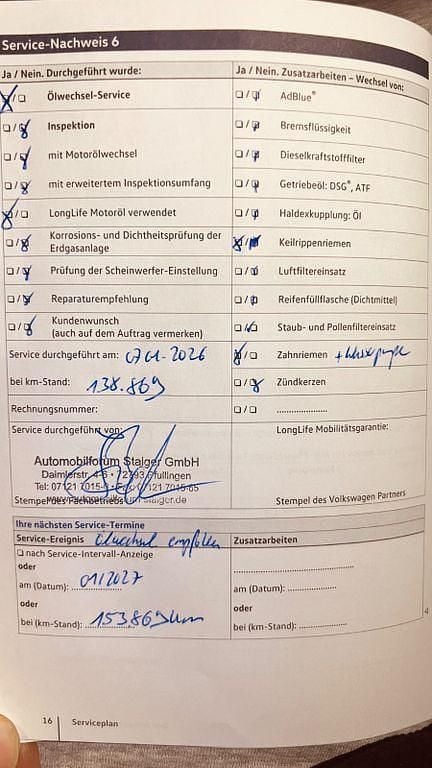 Service-Nachweis 6
Ja / Nein. Durchgeführt wurde:
Ölwechsel-Service
Inspektion
mit Motorölwechsel
mit erweitertem Inspektionsumfang
LongLife Motoröl verwendet
Korrosions- und Dichtheitsprüfung der
Erdgasanlage
Prüfung der Scheinwerfer-Einstellung
Reparaturempfehlung
Kundenwunsch
(auch auf dem Auftrag vermerken)
Service durchgeführt am: 07.01.2026
bei km-Stand: 138.869
Rechnungsnummer:
Service durchgeführt von:
Automobilforum Staiger GmbH
Daimlerstr. 4-6 · 72793 Pfullingen
Tel: 07121 7015-
07121 7015-65
Stempel des Fachbetriebs
staiger.de
Ja / Nein. Zusatzarbeiten – Wechsel von:
AdBlue®
Bremsflüssigkeit
Dieselkraftstofffilter
Getriebeöl: DSG®, ATF
Haldexkupplung: Öl
Keilrippenriemen
Luftfiltereinsatz
Reifenfüllflasche (Dichtmittel)
Staub- und Pollenfiltereinsatz
Zahnriemen
Zündkerzen
....................
LongLife Mobilitätsgarantie:
Stempel des Volkswagen Partners
Ihre nächsten Service-Termine
Service-Ereignis Ölwechsel empfohlen
nach Service-Intervall-Anzeige
oder
am (Datum): 01/2027
oder
bei (km-Stand): 153.869 km
Zusatzarbeiten
am (Datum): ....................
oder
bei (km-Stand): ....................
4
16 | Serviceplan